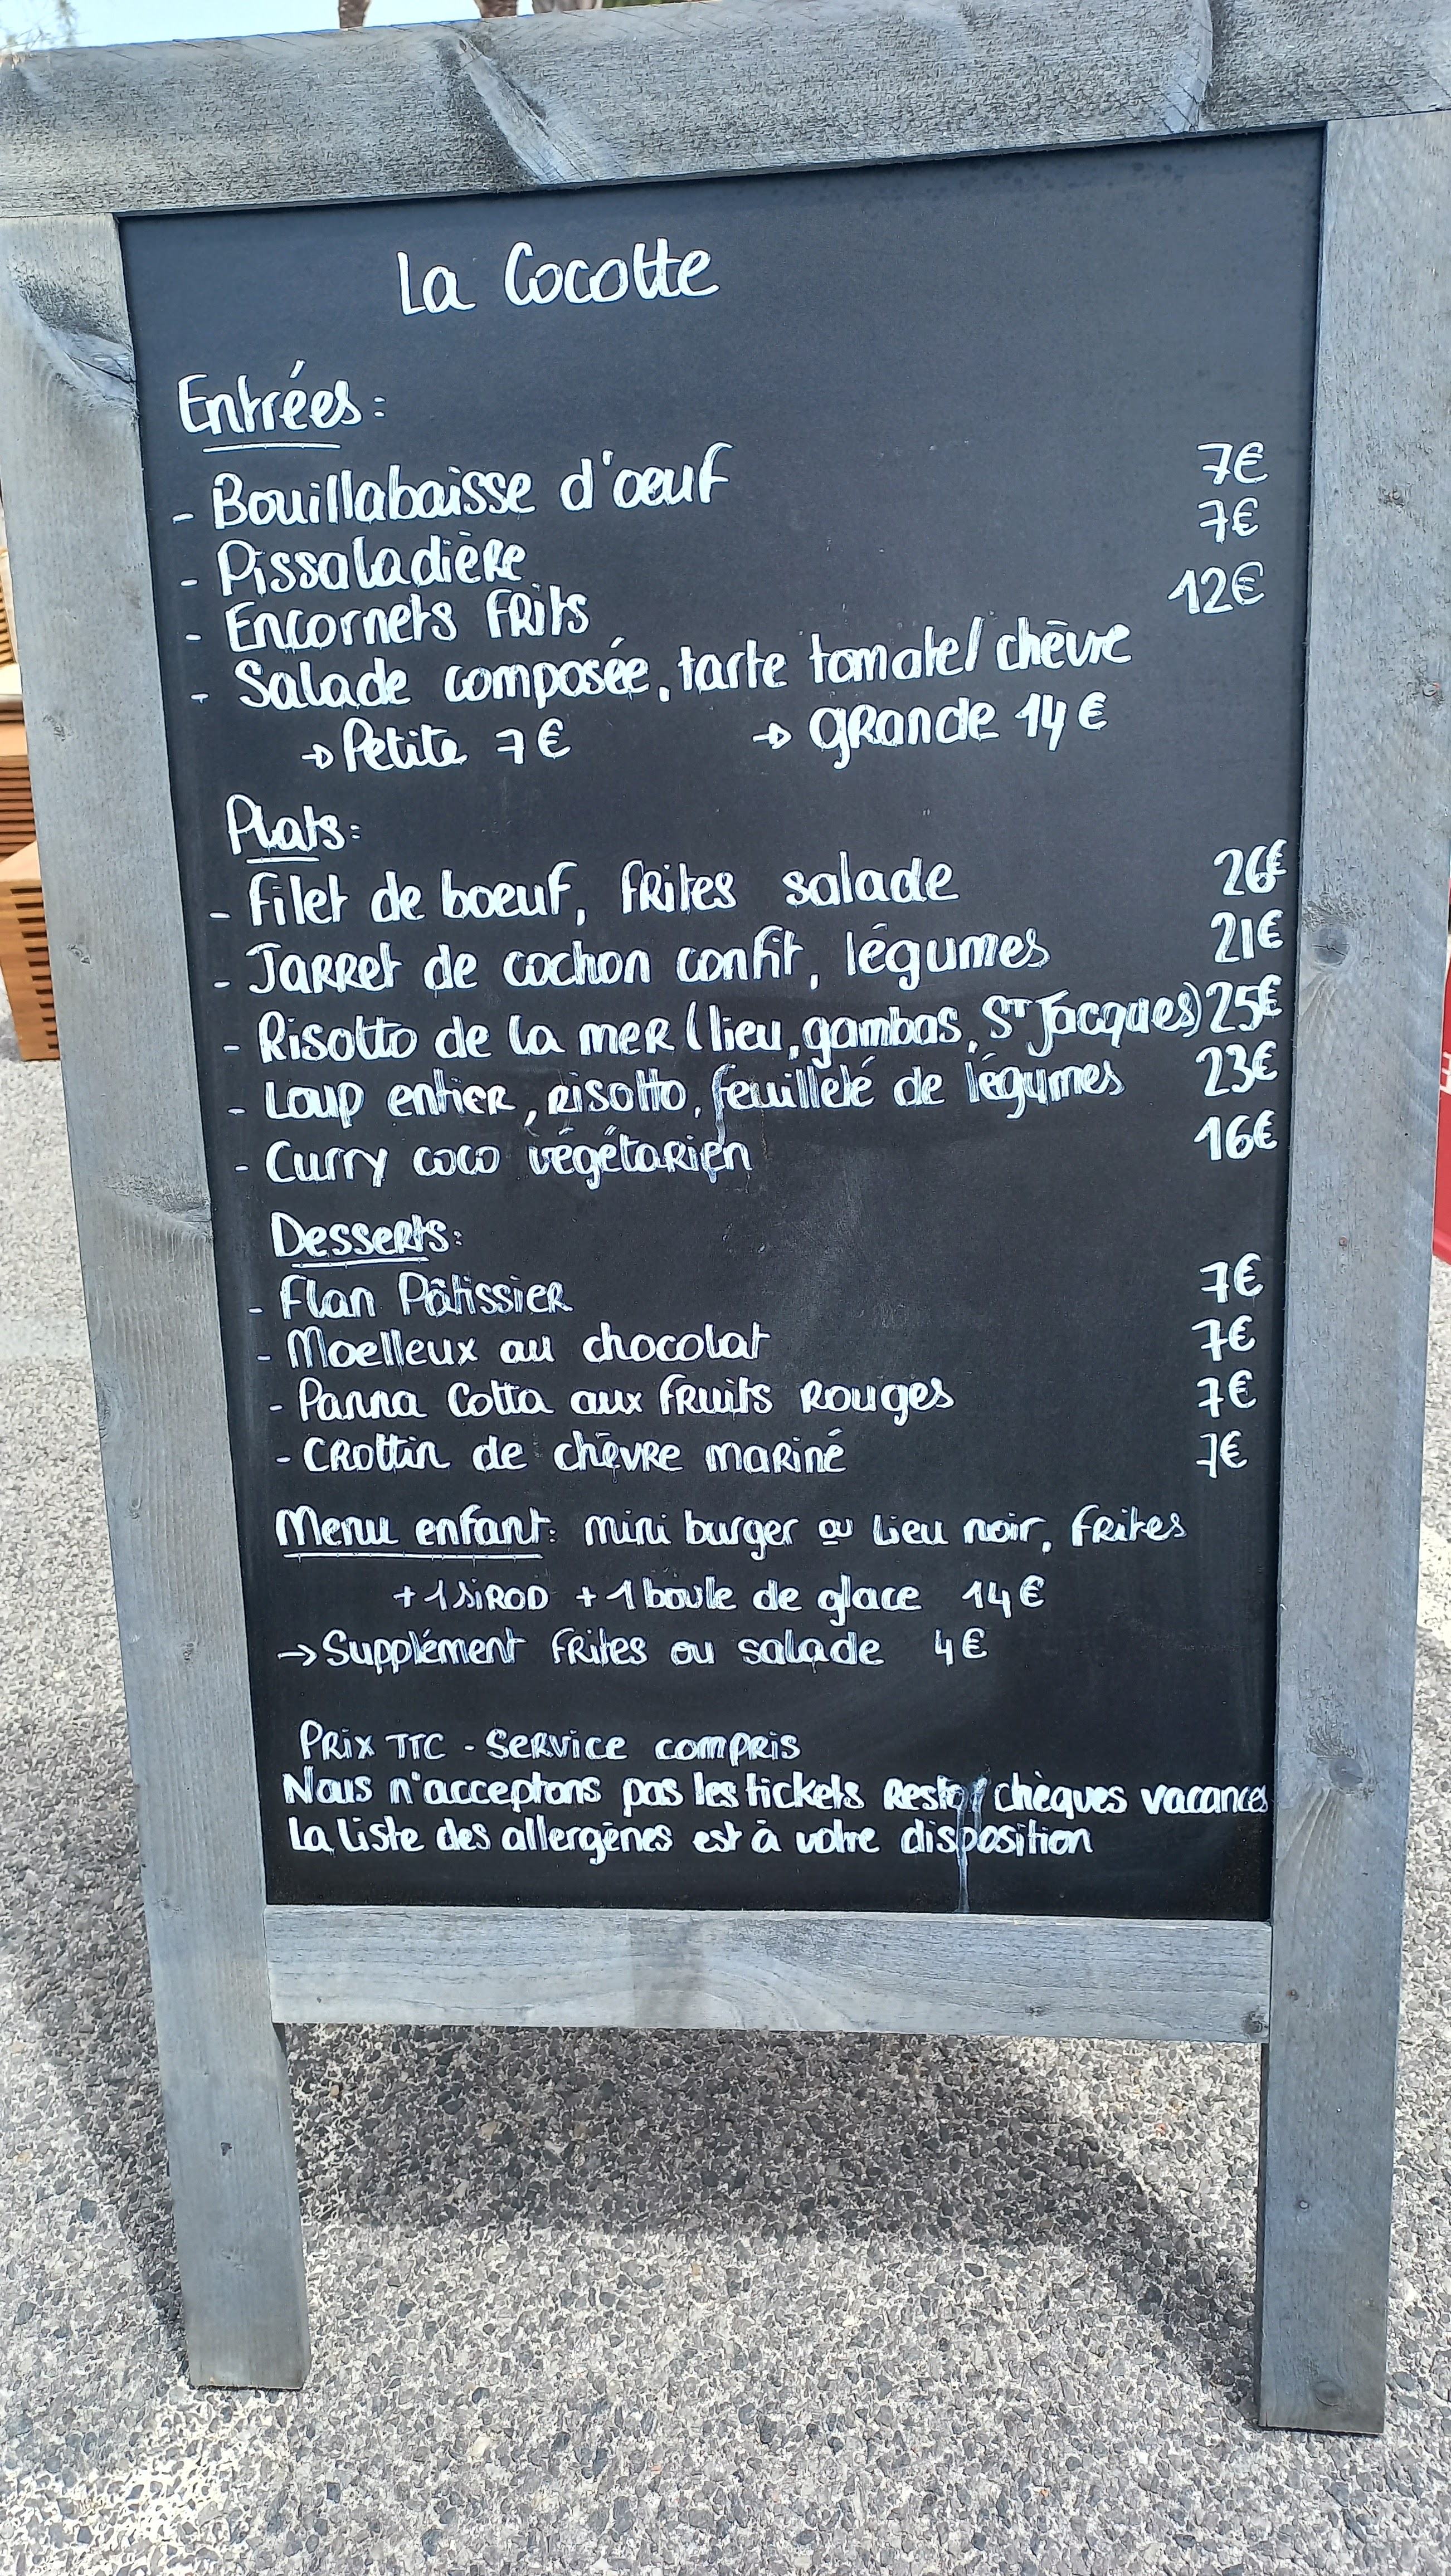 La Cocotte
Entrées:
- Bouillabaisse d'œuf 7€
- Pissaladière 7€
- Encornets frits 12€
- Salade composée, tarte tomate/chèvre
→ Petite 7€ → grande 14€
Plats:
- Filet de boeuf, frites salade 26€
- Jarret de cochon confit, légumes 21€
- Risotto de la mer (lieu, gambas, St Jacques) 25€
- Loup entier, risotto, feuilleté de légumes 23€
- Curry coco végétarien 16€
Desserts:
- Flan Pâtissier 7€
- Moelleux au chocolat 7€
- Panna Cotta aux fruits rouges 7€
- Crottin de chèvre mariné 7€
Menu enfant: mini burger ou lieu noir, frites
+ 1 sirop + 1 boule de glace 14€
→ Supplément frites ou salade 4€
Prix TTC - Service compris
Nous n'acceptons pas les tickets resto / chèques vacances
La liste des allergènes est à votre disposition